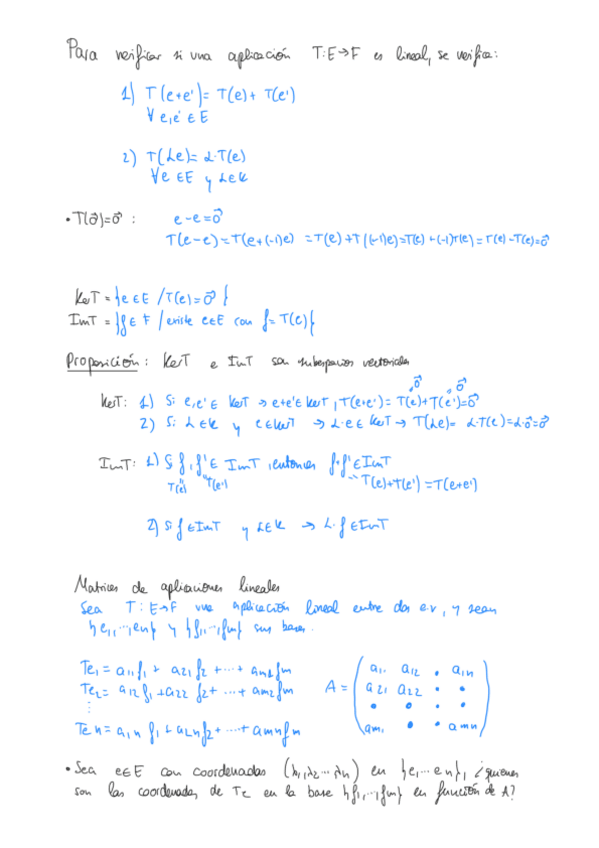 Para verificar si una aplicación T:E→F es lineal, se verifica:
1) T(e+e')= T(e)+ T(e')
∀ e,e' ∈ E
2) T(λe)= λ·T(e)
∀e ∈E y λ∈K
• T(0⃗)=0⃗ : e-e=0⃗
T(e-e)=T(e+(-1)e) =T(e)+T((-1)e)=T(e)+(-1)T(e)=T(e)-T(e)=0⃗
KerT = {e∈E /T(e)=0⃗ }
ImT = {f∈F /existe e∈E con f=T(e)}
Proposición: KerT e ImT son subespacios vectoriales
KerT: 1) Si e,e'∈ KerT → e+e'∈KerT, T(e+e')= T(e)+T(e')=0⃗
2) Si λ∈K y e∈KerT → λ·e∈KerT → T(λe)= λ·T(e)=λ·0⃗=0⃗
ImT: 1) Si f,f'∈ ImT, entonces f+f'∈ImT
T(e) T(e') T(e)+T(e')=T(e+e')
2) Si f∈ImT y λ∈K → λ·f∈ImT
Matrices de aplicaciones lineales
Sea T:E→F una aplicación lineal entre dos e.v, y sean
{e₁,...,en} y {f₁,...,fm} sus bases.
Te₁ = a₁₁f₁ + a₂₁f₂ + ... + am₁fm
Te₂ = a₁₂f₁ + a₂₂f₂ + ... + am₂fm
⋮
Ten = a₁nf₁ + a₂nf₂ + ... + amnfm
A = ( a₁₁ a₁₂ • a₁n
a₂₁ a₂₂ • •
• • • •
am₁ • • amn )
• Sea e∈E con coordenadas (λ₁,λ₂...λn) en {e₁...en}, ¿quienes
son las coordenadas de Te en la base {f₁,...,fm} en función de A?